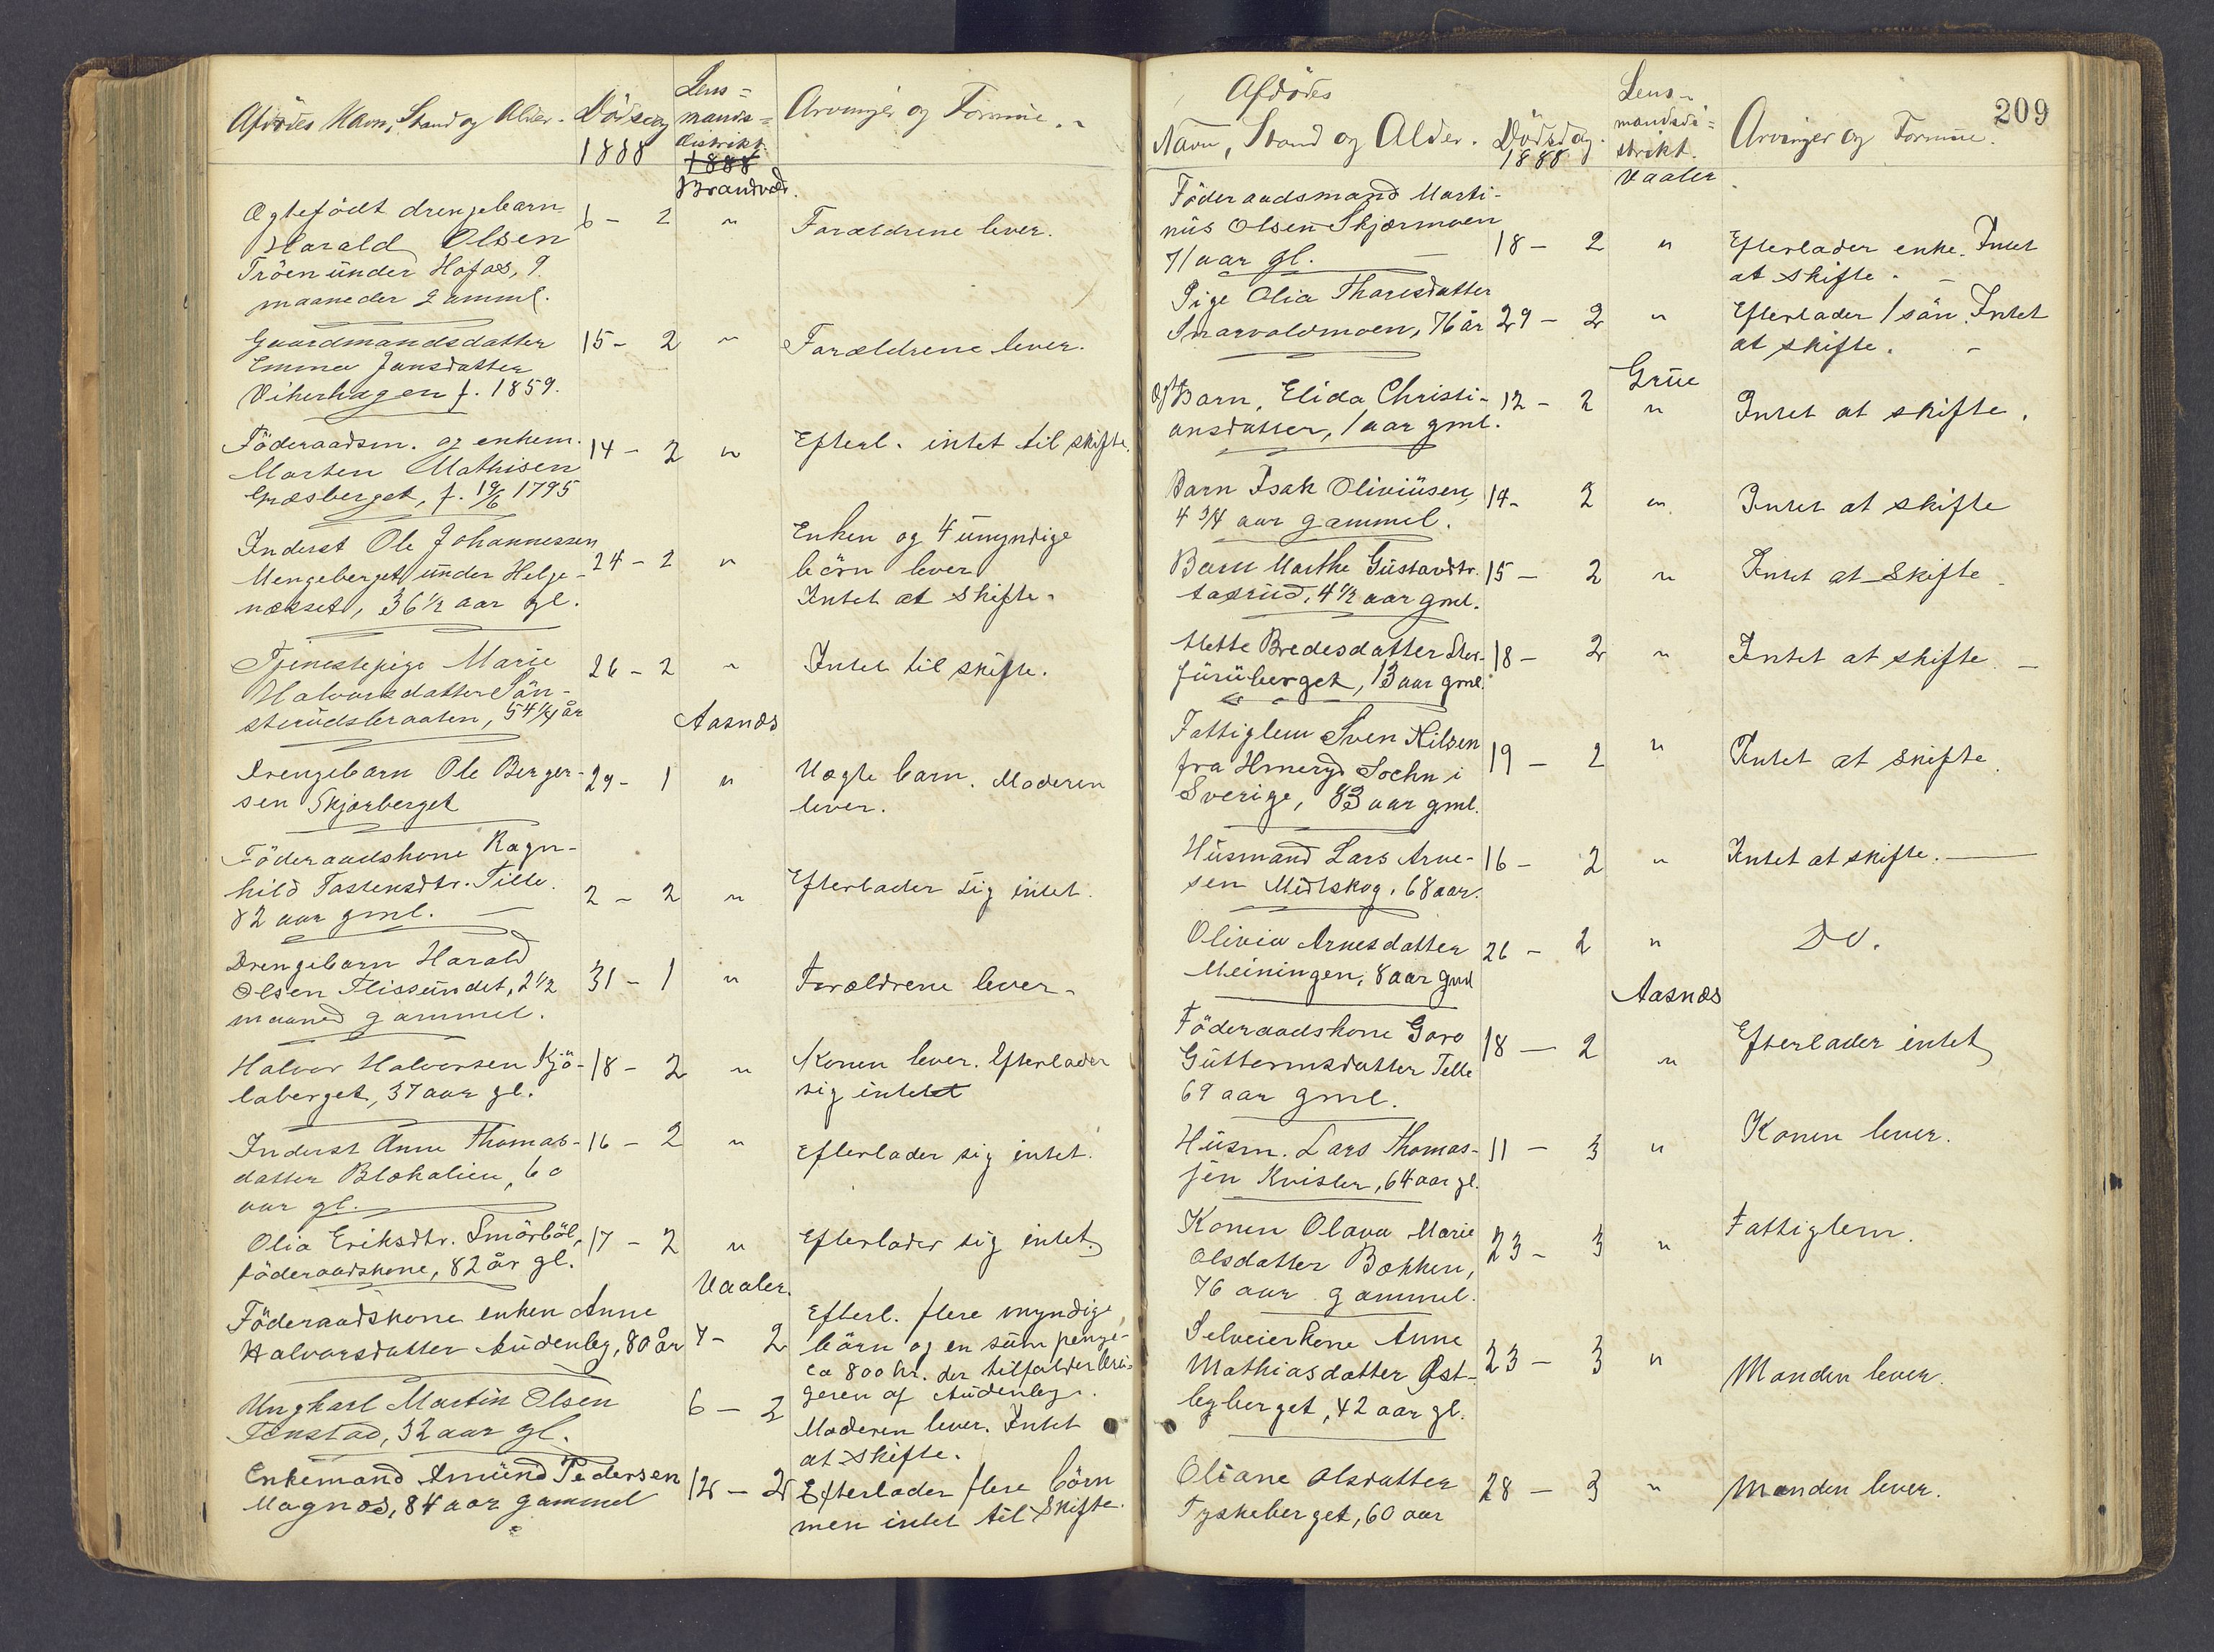 Afdödes Navn, Stand og Alder. Dödsdag Lens=
1888 mands=
distrikt. Arvinger og Formue.
1888
Brandvold.
Ægtefödt drengebarn 6 - 2 " Forældrene lever.
Harald Olsen
Tröen under Hofos, 9
maaneder gamml.
Gaardmandsdatter 15 - 2 " Forældrene lever.
Emma Jansdatter
Vikerhagen f. 1859.
Föderaadsm. og enkem. 14 - 2 " Efterl. intet til skifte.
Morten Mathisen
Græsberget, f. 19/6 1795
Inderst Ole Johannessen 24 - 2 " Enken og 4 umyndige
Mengeberget under Helge- börn lever
næsset, 36 1/2 aar gl. Intet at skifte.
Tjenestepige Marie 26 - 2 " Intet til skifte.
Halvorsdatter Sön-
sterudsbraaten, 54 1/4 år
Aasnæs
Drengebarn Ole Berger- 29 - 1 " Uægte barn. Moderen
sen Skjærberget lever.
Föderaadskone Ragn-
hild Tostensdtr. Tille. 2 - 2 " Efterlader sig intet.
82 aar gml.
Drengebarn Harald
Olsen Flissundet, 2 1/2 31 - 1 " Forældrene lever.
maaned gammel.
Halvor Halvorsen Kjö- 18 - 2 " Konen lever. Efterlader
laberget, 37 aar gl. sig intet
Inderst Anne Thomas- 16 - 2 " Efterlader sig intet.
datter Blokalien, 60
aar gl.
Olia Eriksdtr. Smörböl, 17 - 2 " Efterlader sig intet.
föderaadskone, 82 år gl.
Vaaler.
Föderaadskone enken Anne Efterl. flere myndige
Halvorsdatter Audenby, 80 år 7 - 2 börn og en sum penge-
ca 800 kr. der tilfalder bru-
geren af Audenby.
Ungkarl Martin Olsen 6 - 2 Moderen lever. Intet
Tenstad, 32 aar gl. at skifte.
Enkemand Amund Pedersen 12 - 2 Efterlader flere börn
Magnos, 84 aar gammel men intet til skifte.
209
Afdödes
Navn, Stand og Alder. Dödsdag. Lens-
1888 mandsdi=
strikt. Arvinger og Formue.
Vaaler
Föderaadsmand Marti-
nus Olsen Skjærmoen 18 - 2 " Efterlader enke. Intet
71 aar gl. at skifte.
Pige Olia Tharesdatter 29 - 2 " Efterlader 1 sön. Intet
Snarvoldmoen, 76 år at skifte.
Grue
Barn, Elida Christi- 12 - 2 " Intet at skifte.
ansdatter, 1 aar gml.
Barn Isak Oliviusen, 14 - 2 " Intet at skifte
4 3/4 aar gammel.
Barn Marthe Gustavdtr. 15 - 2 " Intet at skifte
Aasrud, 4 1/2 aar gml.
Mette Bredesdatter Stor- 18 - 2 " Intet at skifte.
furuberget, 13 aar gml.
Fattiglem Sven Nilsen 19 - 2 " Intet at skifte.
fra Hmeryd Sochn i
Sverige, 83 aar gml.
Husmand Lars Arne- 16 - 2 " Intet at skifte.
sen Midtskog, 68 aar.
Olivia Arnesdatter 26 - 2 " Do.
Meiningen, 8 aar gml
Aasnæs
Föderaadskone Goro 18 - 2 " Efterlader intet
Guttormsdatter Telle
69 aar gml.
Husm. Lars Thomas- 11 - 3 " Konen lever.
sen Kvisler, 64 aar gl.
Konen Olava Marie 23 - 3 " Fattiglem.
Olsdatter Bækken,
76 aar gammel.
Selveierkone Anne 23 - 3 " Manden lever.
Mathiasdatter Øst-
byberget, 42 aar gl.
Oliane Olsdatter 28 - 3 " Manden lever.
Tyskeberget, 60 aar